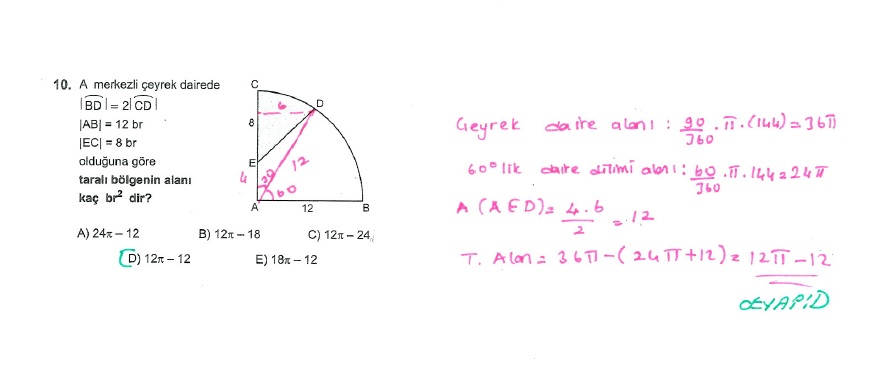 10. A merkezli çeyrek dairede
|BD| = 2|CD|
|AB| = 12 br
|EC| = 8 br
olduğuna göre
taralı bölgenin alanı
kaç br² dir?
C
D
6
8
E
12
4
30
60
A
12
B
A) 24π – 12 B) 12π – 18 C) 12π – 24
D) 12π – 12 E) 18π – 12
Çeyrek daire alanı : 90/360 . π . (144) = 36π
60° lik daire dilimi alanı : 60/360 . π . 144 = 24π
A (AED) = 4.6/2 = 12
T. Alan = 36π – (24π + 12) = 12π – 12
CEVAP D